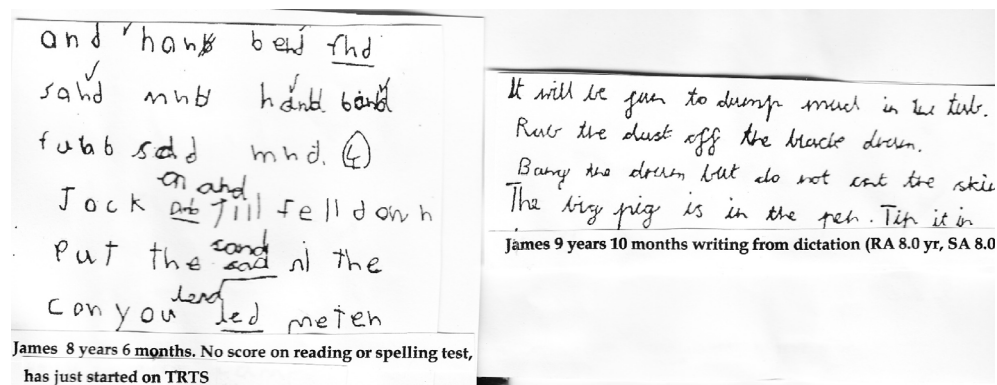 and hand bend fhd
sahd mnb hand band
fubb sdd mnd. 4
on and
Jock anb Jill fell down
sand
Put the sad ni the
lend
con you led meten
James 8 years 6 months. No score on reading or spelling test,
has just started on TRTS
It will be fun to dump mud in the tub.
Rub the dust off the black drum.
Bang the drum but do not cut the skin
The big pig is in the pen. Tip it in
James 9 years 10 months writing from dictation (RA 8.0 yr, SA 8.0